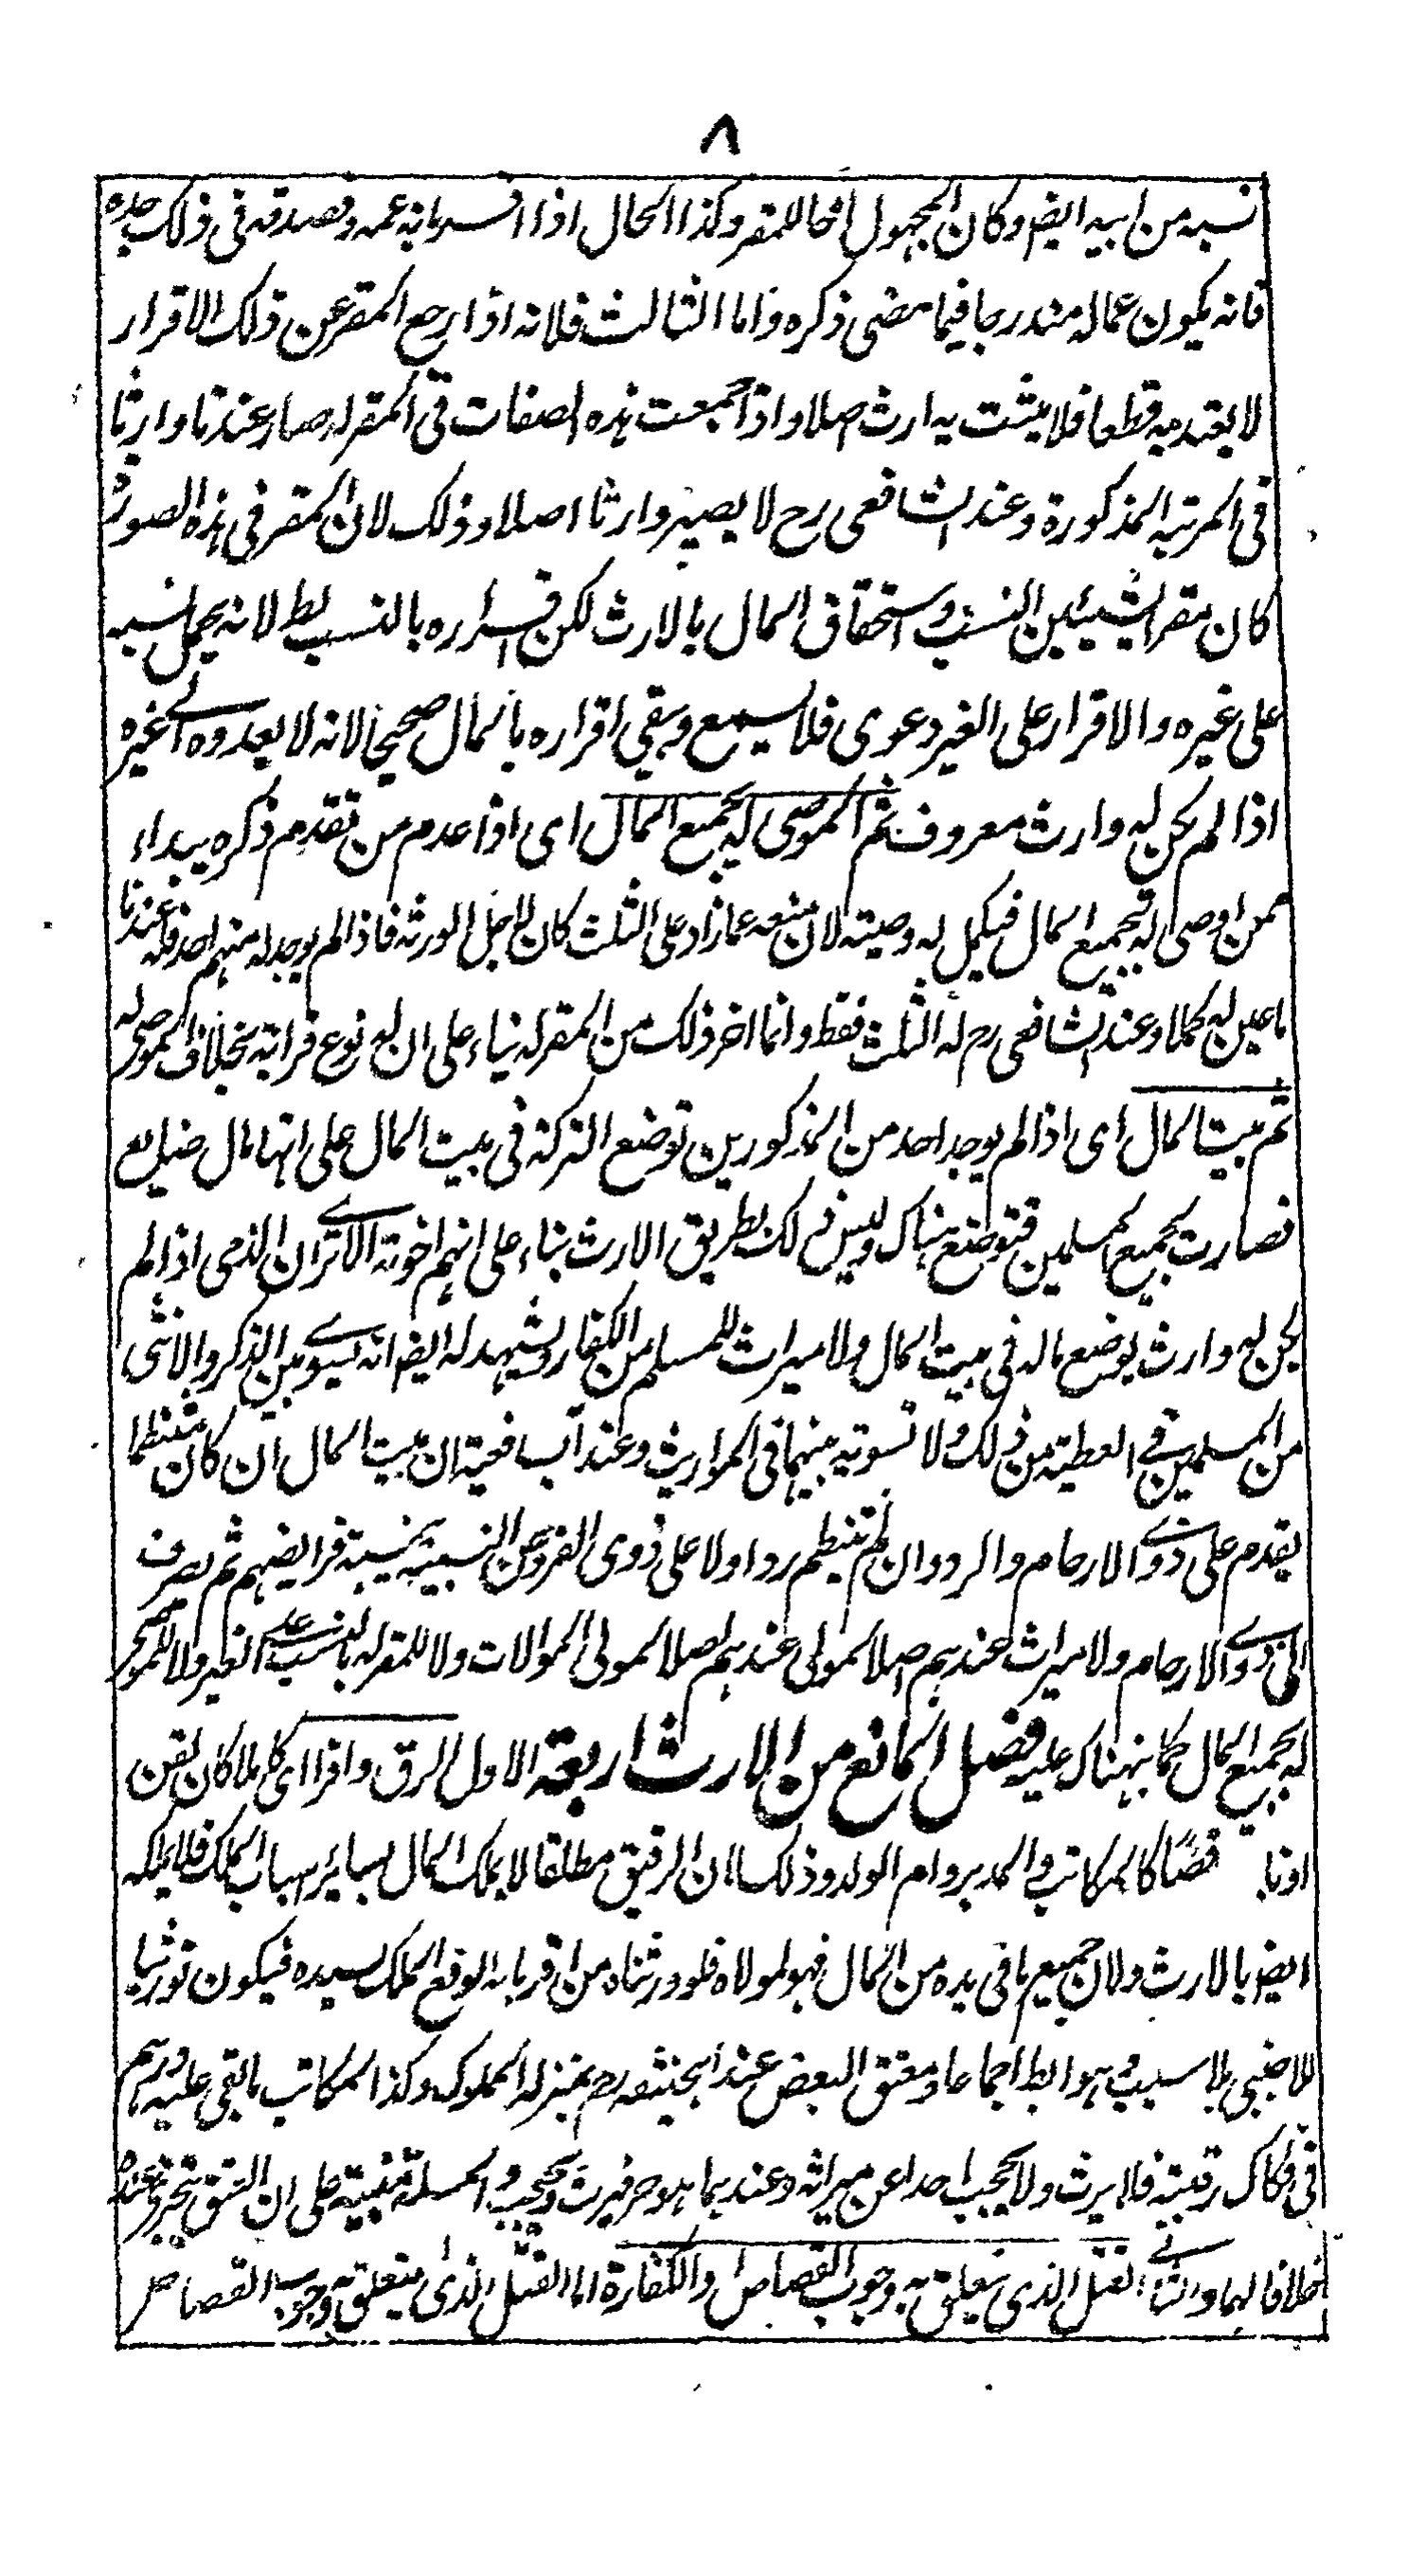 ٨
نسبه من ابيه ايضا وكان المجهول اخا للمقر وكذا الحال اذا اقر بانه عمه وصدقه فى ذلك جده
فانه يكون عما له مندرجا فيما مضى ذكره واما الثالث فلانه اذا رجع المقر عن ذلك الاقرار
لا يعتد به قطعا فلا يثبت به ارث اصلا واذا اجتمعت هذه الصفات فى المقر له صار عندنا وارثا
فى المرتبه المذكورة وعند الشافعى رح لا يصير وارثا اصلا وذلك لان المقر فى هذه الصورة
كان مقرا بشيئين النسب واستحقاق المال بالارث لكن اقراره بالنسب بط لانه يحمل نسبه
على غيره والاقرار على الغير دعوى فلا يسمع وبقى اقراره بالمال صحيحا لانه لا يعدوه الى غيره
اذا لم يكن له وارث معروف ثم الموصى له بجميع المال اى اذا عدم من تقدم ذكره يبداء
بمن اوصى له بجميع المال فيكمل له وصيته لان منعه عما زاد على الثلث كان لاجل الورثه فاذا لم يوجد له منهم احد فله عندنا
ما عين له كملا وعند الشافعى رح له الثلث فقط وانما اخر ذلك من المقر له بناء على ان له نوع قرابته بخلاف الموصى له
ثم بيت المال اى اذا لم يوجد احد من المذكورين توضع التركة فى بيت المال على انها مال ضايع
فصارت بجميع المسلمين فتوضع هناك وليس ذلك بطريق الارث بناء على انهم اخوته الا ترى ان الذمى اذا لم
يكن له وارث يوضع ماله فى بيت المال ولا ميراث للمسلم من الكفار ويشهد له ايضا انه يسوى بين الذكر والانثى
من المسلمين فى العطيه من ذلك ولا تسويه بينهما فى المواريث وعند الشافعية ان بيت المال ان كان منتظما
يقدم على ذوى الارحام والرد وان لم ينتظم رد اولا على ذوى الفروض النسبيه بنسبة فرايضهم ثم يصرف
الى ذوى الارحام ولا ميراث عندهم اصلا لمولى عندهم اصلا لمولى الموالات ولا للمقر له بالنسب على الغير ولا للموصى
له بجميع المال كما نبهناك عليه فصل المانع من الارث اربعة الاول الرق وافرا اى كاملا كان كقن
او ناقصا كالمكاتب والمدبر وام الولد وذلك ان الرقيق مطلقا لا يملك المال بسائر اسباب الملك فلا يملكه
ايضا بالارث ولان جميع ما فى يده من المال فهو لمولاه فلو ورثناه من اقربائه لوقع الملك لسيده فيكون توريثا
للاجنبى بلا سبب وهو باطل اجماعا ومعتق البعض عند ابيحنيفه رح بمنزله المملوك وكذا المكاتب ما بقى عليه درهم
فى فكاك رقبته فلا يرث ولا يحجب احدا عن ميراثه وعندهما هو حر فيرث ويحجب والمسئلة مبنيه على ان العتق يتجزى عنده
خلافا لهما والثانى القتل الذى يتعلق به وجوب القصاص او الكفارة اما القتل الذى يتعلق به وجوب القصاص